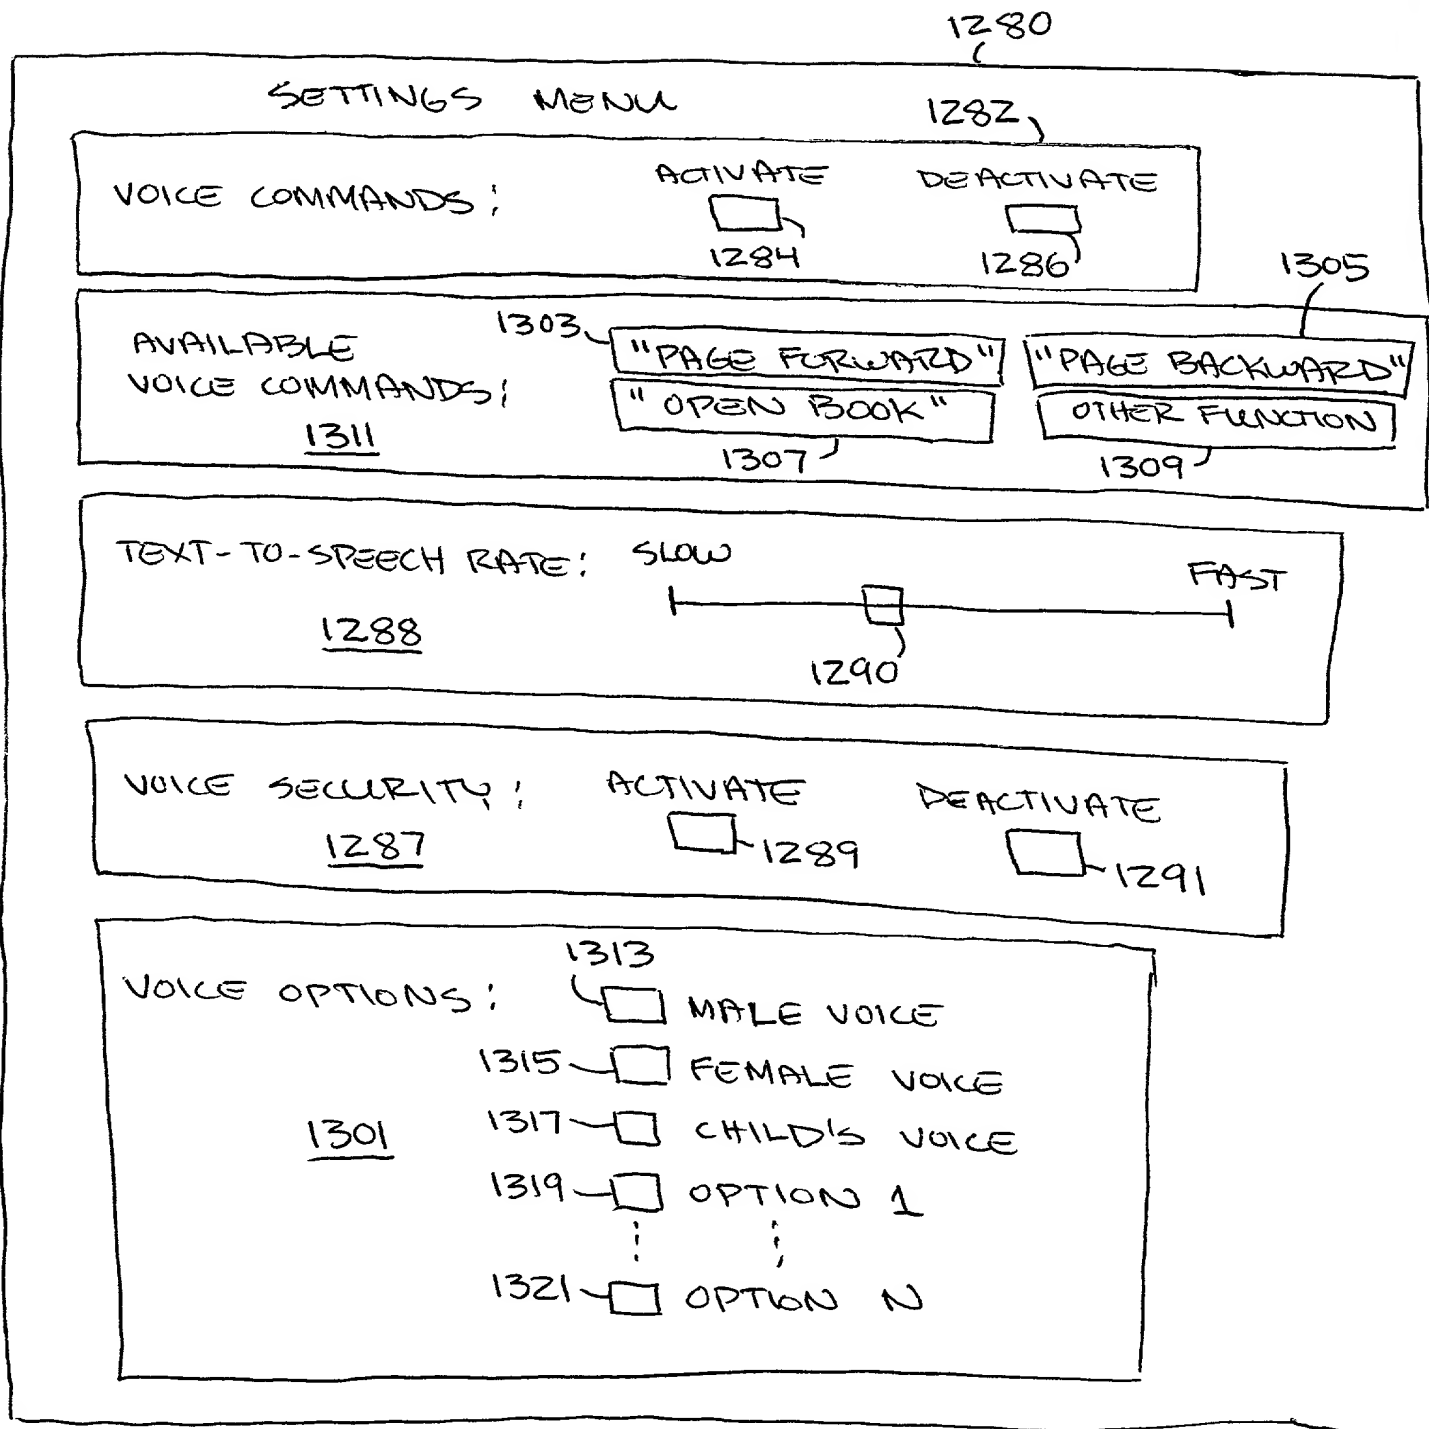 1280
SETTINGS MENU
1282
VOICE COMMANDS:
ACTIVATE
DEACTIVATE
1284
1286
1305
AVAILABLE
VOICE COMMANDS:
1311
1303
"PAGE FORWARD"
"PAGE BACKWARD"
"OPEN BOOK"
OTHER FUNCTION
1307
1309
TEXT-TO-SPEECH RATE:
SLOW
FAST
1288
1290
VOICE SECURITY:
ACTIVATE
DEACTIVATE
1287
1289
1291
VOICE OPTIONS:
1301
1313
MALE VOICE
1315
FEMALE VOICE
1317
CHILD'S VOICE
1319
OPTION 1
1321
OPTION N